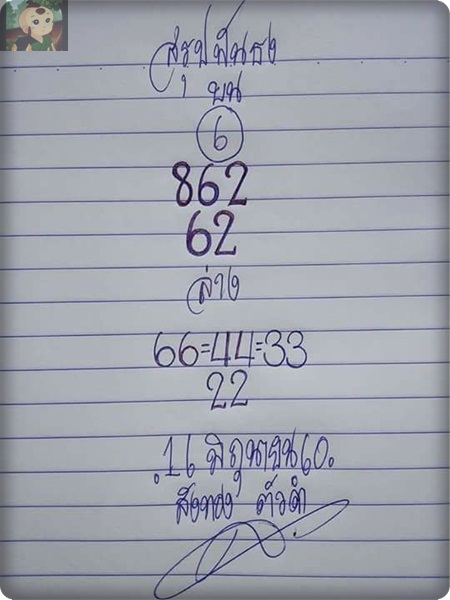 สรุปฟันธง
บน
6
862
62
ล่าง
66=44=33
22
16 มิถุนายน 60
สังทอง ตัวดำ